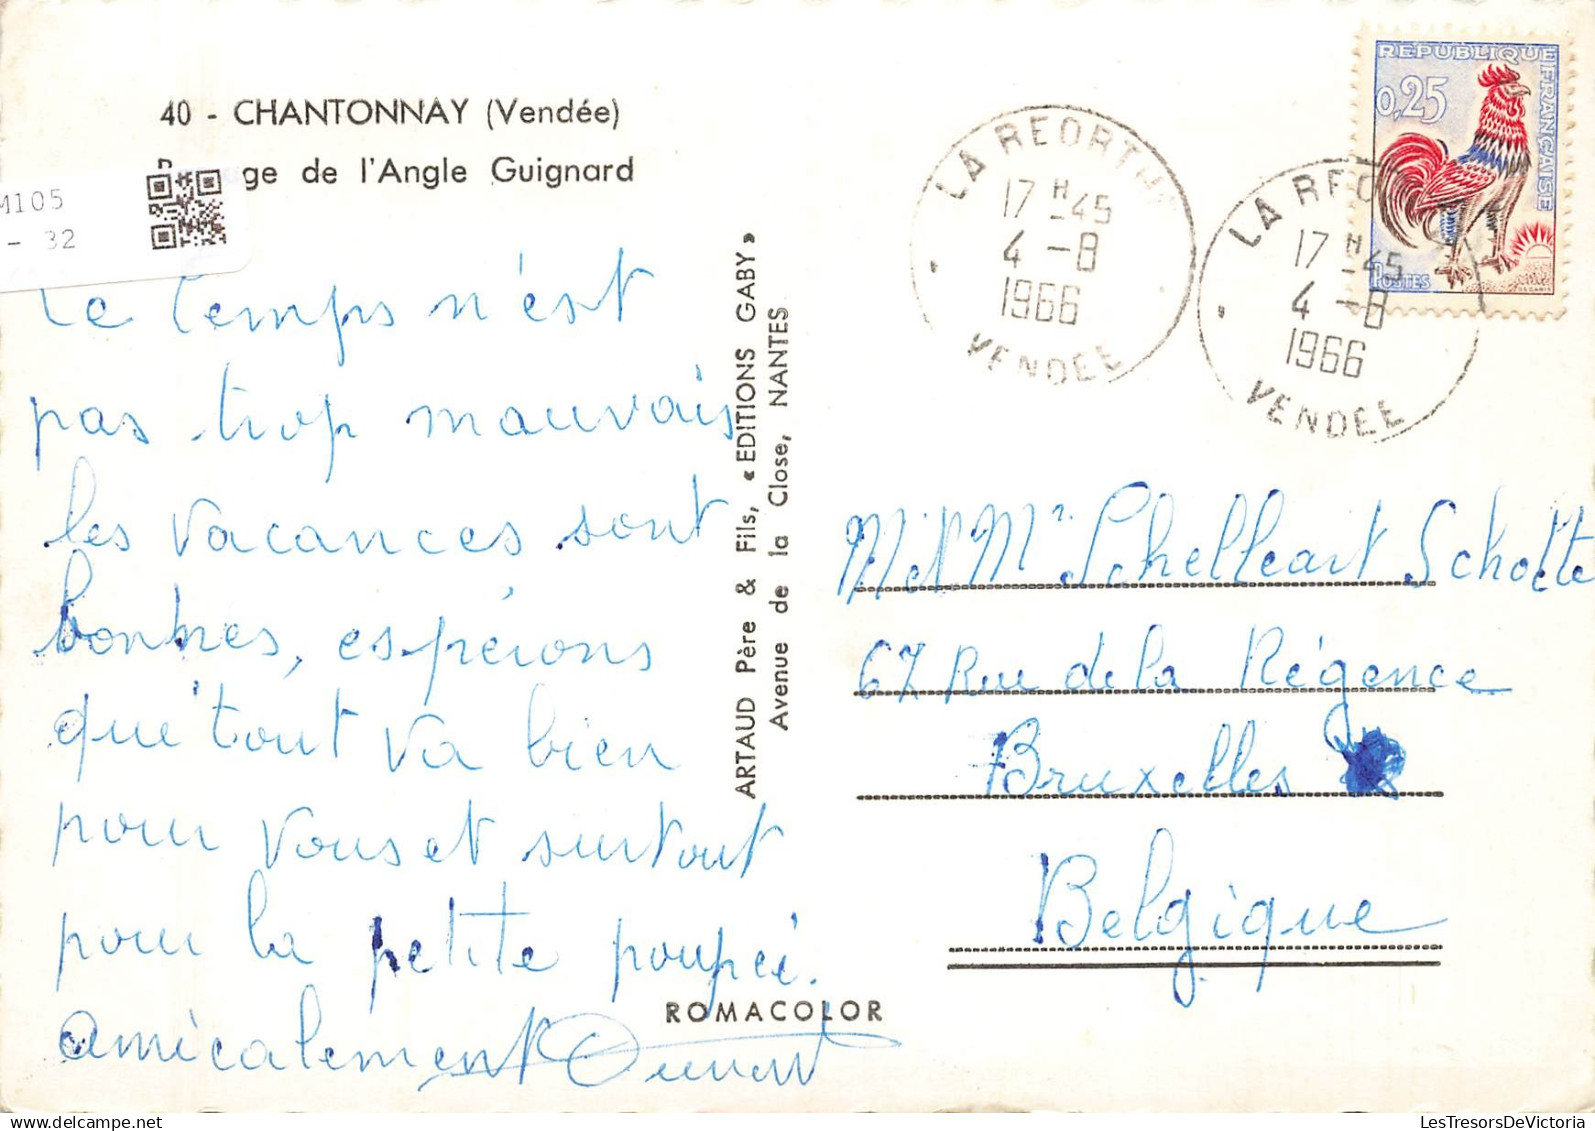 40 - CHANTONNAY (Vendée)
ge de l'Angle Guignard
M105
- 32
Le temps n'est
pas trop mauvais
les vacances sont
bonnes, espérons
que tout va bien
pour vous et surtout
pour la petite poupée.
amicalement
ARTAUD Père & Fils, « EDITIONS GABY »
Avenue de la Close, NANTES
ROMACOLOR
LA REORTHE
17 H -45
4 -8
1966
VENDEE
LA REO
17 H -45
4 -8
1966
VENDEE
REPUBLIQUE FRANÇAISE
0,25
POSTES
DECARIS
M. et Mme Schelleart Scholte
67 Rue de la Régence
Bruxelles
Belgique
LesTresorsDeVictoria